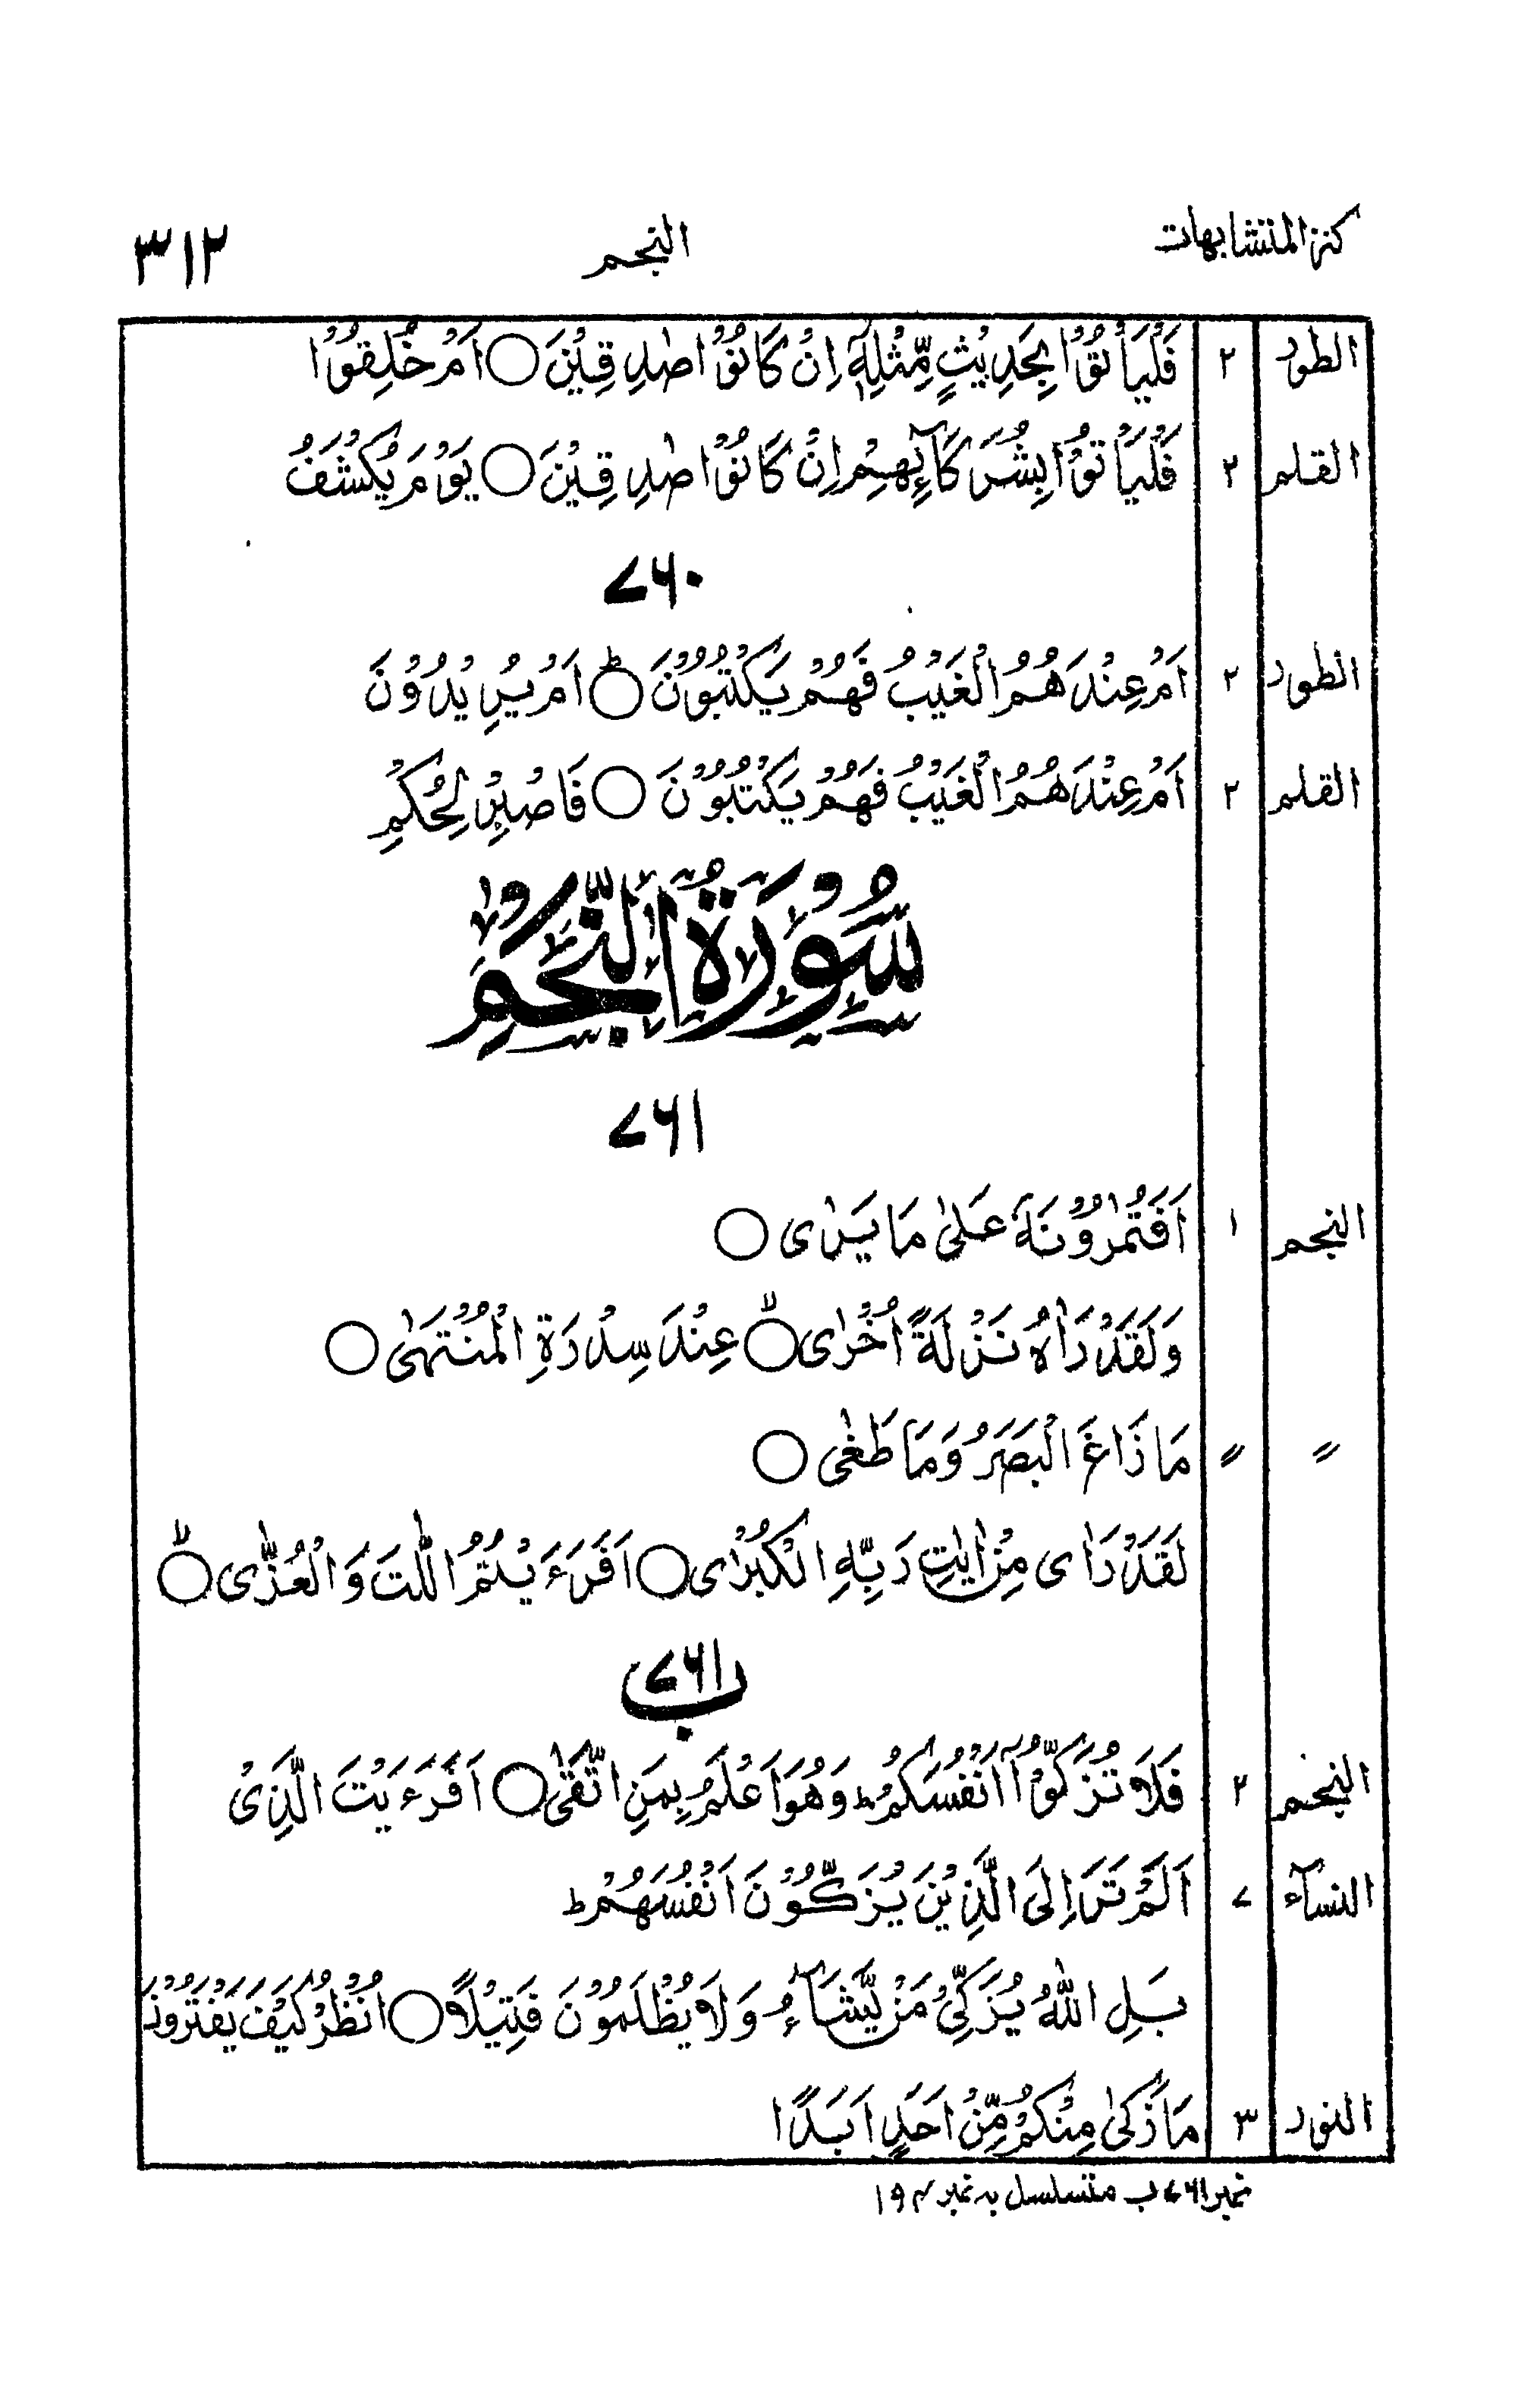 كنز المتشابهات النجم ٣١٢
الطور ٢ فَلْيَأْتُوْا بِحَدِيْثٍ مِّثْلِهٖٓ اِنْ كَانُوْا صٰدِقِيْنَ ○ اَمْ خُلِقُوْا
القلم ٢ فَلْيَأْتُوْا بِشُرَكَآئِهِمْ اِنْ كَانُوْا صٰدِقِيْنَ ○ يَوْمَ يُكْشَفُ
۷۶۰
الطور ٢ اَمْ عِنْدَهُمُ الْغَيْبُ فَهُمْ يَكْتُبُوْنَ ○ؕ اَمْ يُرِيْدُوْنَ
القلم ٢ اَمْ عِنْدَهُمُ الْغَيْبُ فَهُمْ يَكْتُبُوْنَ ○ فَاصْبِرْ لِحُكْمِ
سُوْرَةُ النَّجْمِ
۷۶۱
النجم ١ اَفَتُمٰرُوْنَهٗ عَلٰى مَا يَرٰى ○
وَلَقَدْ رَاٰهُ نَزْلَةً اُخْرٰى ○ۙ عِنْدَ سِدْرَةِ الْمُنْتَهٰى ○
〃 〃 مَا زَاغَ الْبَصَرُ وَمَا طَغٰى ○
لَقَدْ رَاٰى مِنْ اٰيٰتِ رَبِّهِ الْكُبْرٰى ○ اَفَرَءَيْتُمُ اللّٰتَ وَالْعُزّٰى ○ۙ
۷۶۱ب
النجم ٢ فَلَا تُزَكُّوْٓا اَنْفُسَكُمْؕ وَهُوَ اَعْلَمُ بِمَنِ اتَّقٰى ○ اَفَرَءَيْتَ الَّذِىْ
النسآء ۷ اَلَمْ تَرَ اِلَى الَّذِيْنَ يُزَكُّوْنَ اَنْفُسَهُمْؕ
بَلِ اللّٰهُ يُزَكِّىْ مَنْ يَّشَآءُ وَلَا يُظْلَمُوْنَ فَتِيْلًا ○ اُنْظُرْ كَيْفَ يَفْتَرُوْنَ
النور ٣ مَا زَكٰى مِنْكُمْ مِّنْ اَحَدٍ اَبَدًا
نمبر ۷۶۱ب متسلسل بہ نمبر ۱۹۴